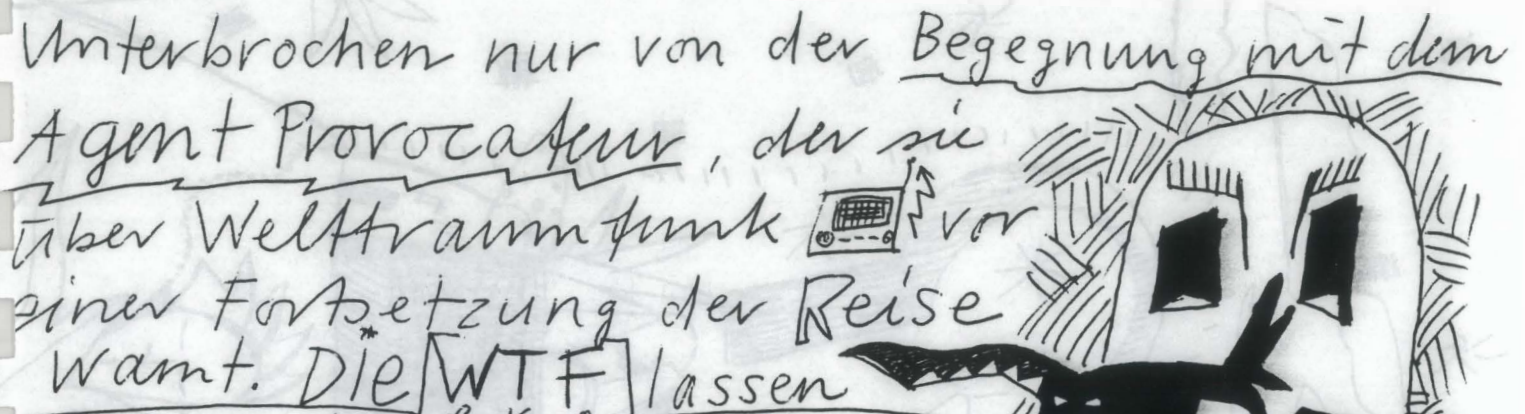 Unterbrochen nur von der Begegnung mit dem
Agent Provocateur, der sie
über Welttraumfunk vor
einer Fortsetzung der Reise
warnt. Die WTF lassen